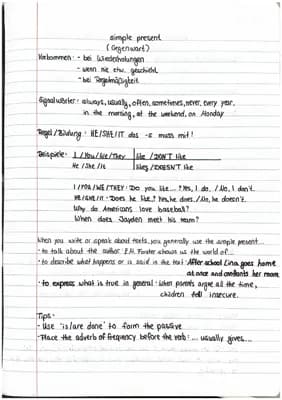 simple present
(Gegenwart)
Vorkommen: - bei Wiederholungen
- wenn nie etw. geschieht
- bei Regelmäßigkeit
Signalwörter: always, usually, often, sometimes, never, every year,
in the morning, at the weekend, on Monday
Regel/Bildung: HE/SHE/IT das -s muss mit!
Beispiele: I/You/We/They like / DON'T like
He/She/It likes / DOESN'T like
I/YOU/WE/THEY: Do you like...? Yes, I do. / No, I don't.
HE/SHE/IT: Does he like..? Yes, he does. / No, he doesn't.
Why do Americans love baseball?
When does Jayden meet his team?
When you write or speak about texts, you generally use the simple present...
- to talk about the author: E.M. Forster shows us the world of...
- to describe what happens or is said in the text: After school Lina goes home
at once and confronts her mom
- to express what is true in general: When parents argue all the time,
children fell insecure.
Tips:
- Use 'is/are done' to form the passive
- Place the adverb of frequency before the verb: ... usually gives...